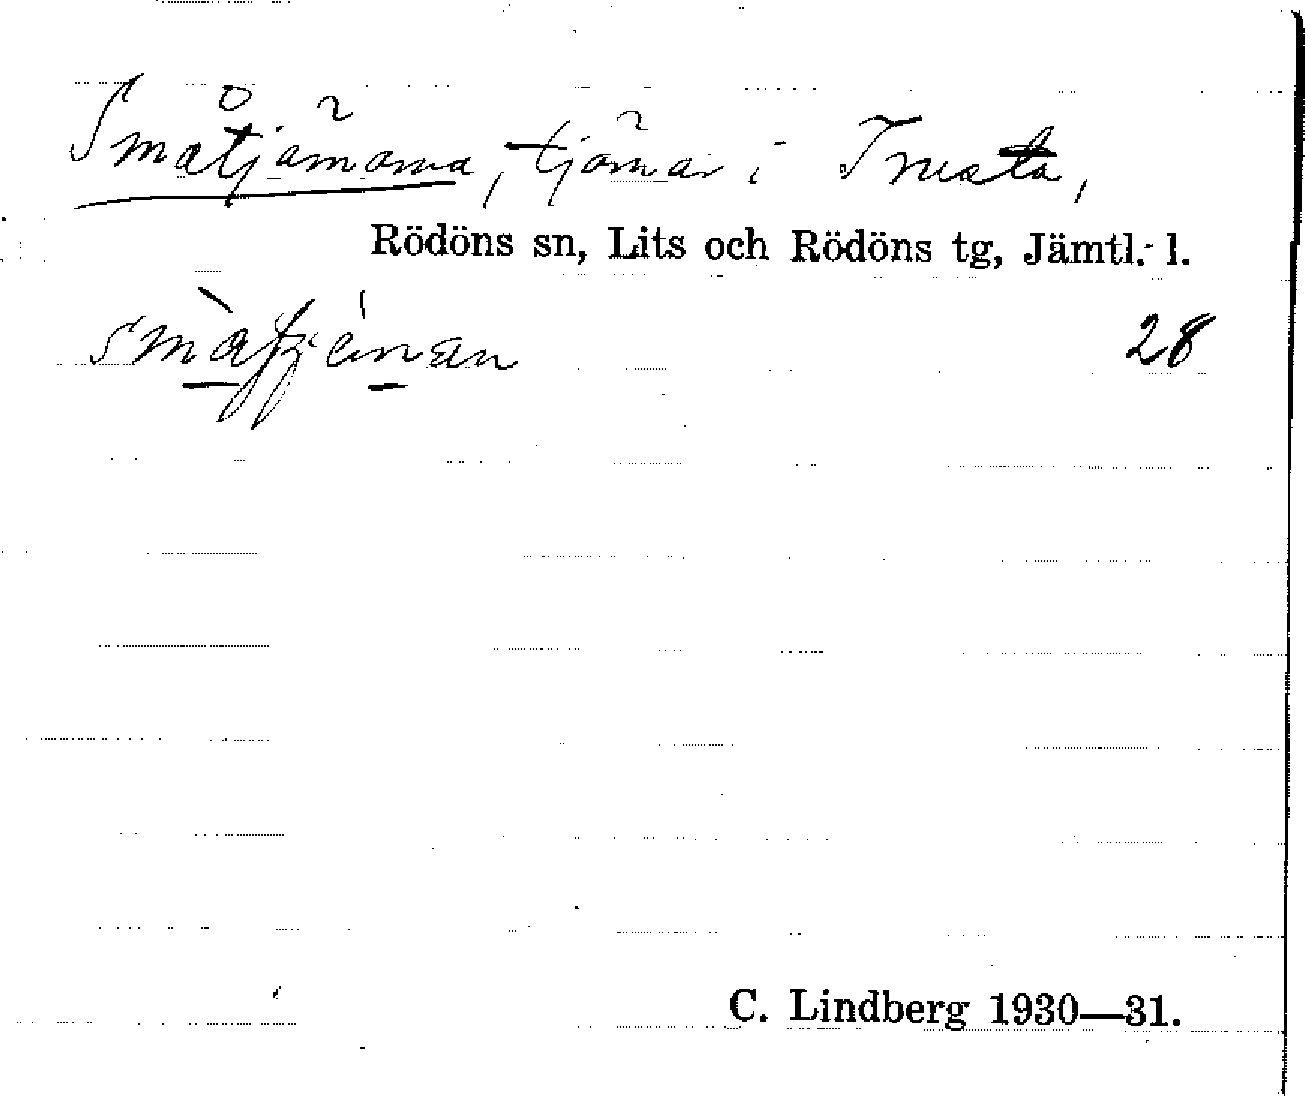 Småtjärnarna, tjärnar i Trusta,
Rödöns sn, Lits och Rödöns tg, Jämtl. l.
28
C. Lindberg 1930—31.